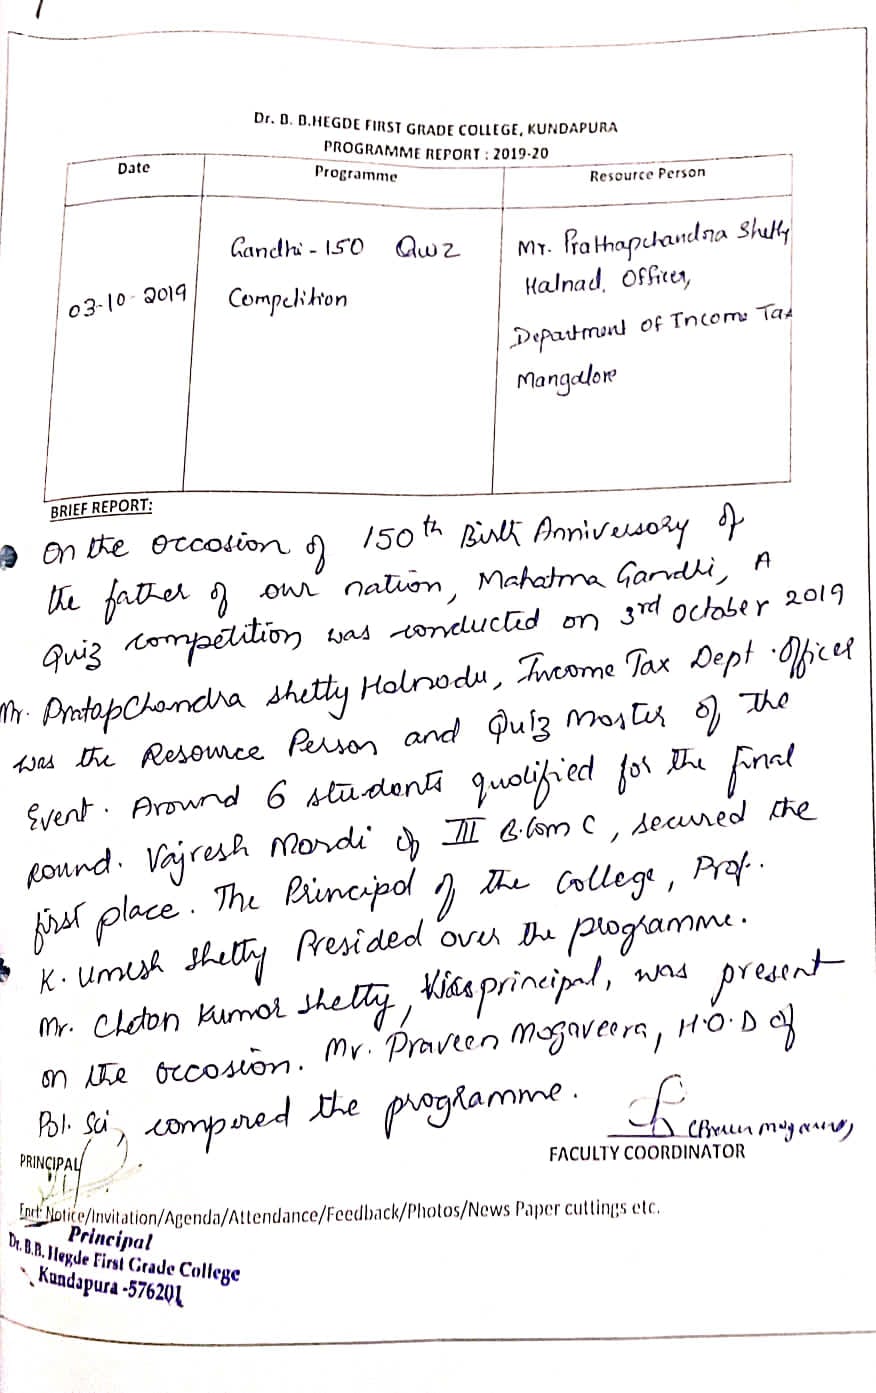 Dr. B. B.HEGDE FIRST GRADE COLLEGE, KUNDAPURA
PROGRAMME REPORT : 2019-20
Date
Programme
Resource Person
03-10-2019
Gandhi-150 Quiz
Competition
Mr. Prathapchandra Shetty
Halnad, Officer,
Department of Income Tax
Mangalore
BRIEF REPORT:
On the occasion of 150th Birth Anniversary of
the father of our nation, Mahatma Gandhi, A
Quiz competition was conducted on 3rd October 2019
Mr. PratapChandra Shetty Halnadu, Income Tax Dept. Officer
was the Resource Person and Quiz Master of the
Event. Around 6 students qualified for the final
round. Vajresh Mardi of III B.Com C, secured the
first place. The Principal of the College, Prof.
K. Umesh Shetty Presided over the programme.
Mr. Chetan Kumar Shetty, Vice principal, was present
on the occasion. Mr. Praveen Mogaveera, H.O.D of
Pol. Sci, compered the programme.
(Praveen Mogaveera)
PRINCIPAL
FACULTY COORDINATOR
Encl: Notice/Invitation/Agenda/Attendance/Feedback/Photos/News Paper cuttings etc.
Principal
Dr. B.B. Hegde First Grade College
Kundapura -576201